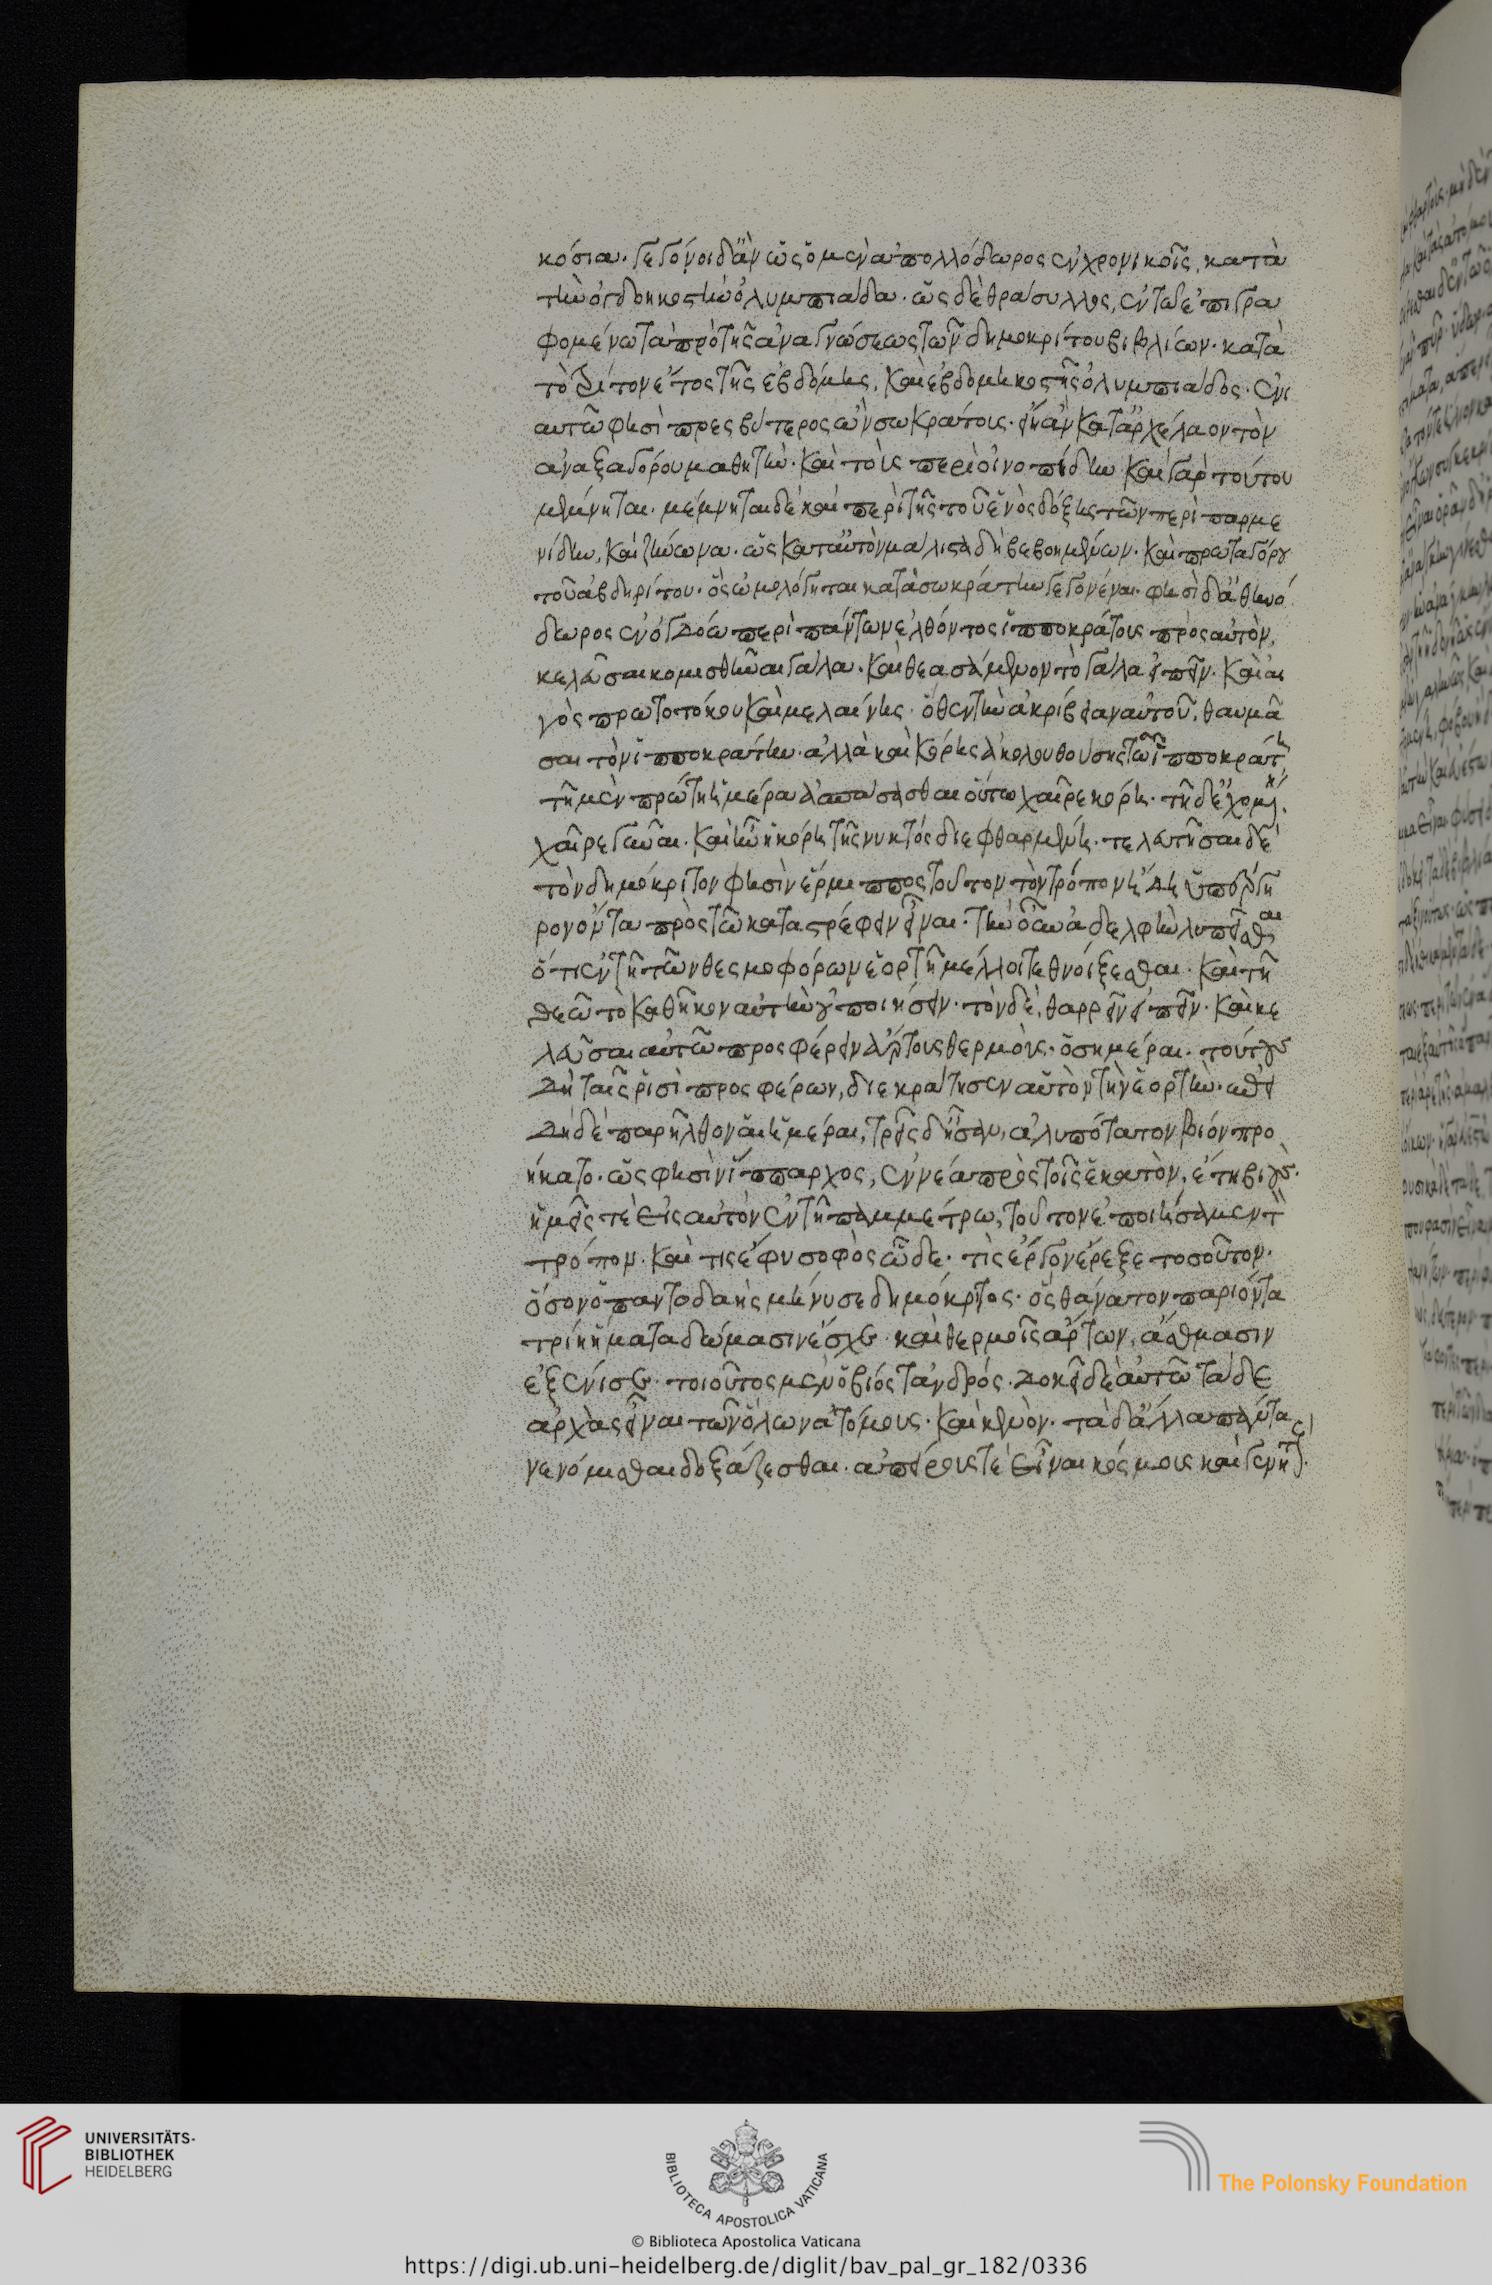 κόσια. γεγόνοι δ' ἂν ὡς ὁ μὲν ἀπολλόδωρος ἐν χρονικοῖς, κατὰ
τὴν ὀγδοηκοστὴν ὀλυμπιάδα. ὡς δὲ θράσυλλος, ἐν τῶ ἐπιγρα
φομένω τὰ πρὸ τῆς ἀναγνώσεως τῶν δημοκρίτου βιβλίων. κατὰ
τὸ τρίτον ἔτος τῆς ἑβδόμης, καὶ ἑβδομηκοστῆς ὀλυμπιάδος. ἐνι
αυτῶ φησὶ πρεσβύτερος ὢν σωκράτους. εἴη ἂν κατ' ἀρχέλαον τὸν
ἀναξαγόρου μαθητὴν. καὶ τοὺς περὶ οἰνοπίδην καὶ γὰρ τούτου
μέμνηται. μέμνηται δὲ καὶ περὶ τῆς τοῦ ἑνὸς δόξης τῶν περὶ παρμε
νίδην, καὶ ζήνωνα. ὡς κατ' αὐτὸν μάλιστα διαβεβοημένων. καὶ πρωταγόρου
τοῦ ἀβδηρίτου. ὃς ὡμολόγηται κατὰ σωκράτην γεγονέναι. φησὶ δ' ἀθηνό
δωρος ἐν ὀγδόω περὶ πάντων ἐλθόντος ἱπποκράτους πρὸς αὐτὸν,
κελεῦσαι κομισθῆναι γάλα. καὶ θεασάμενον τὸ γάλα εἰπεῖν. καὶ αι
γὸς πρωτοτόκου καὶ μελαίνης. ὅθεν τὴν ἀκρίβειαν αὐτοῦ, θαυμά
σαι τὸν ἱπποκράτην. ἀλλὰ καὶ κόρης ἀκολουθούσης τῶ ἱπποκράτη
τῆ μὲν πρώτη ἡμέρα ἀσπάσασθαι οὕτω χαῖρε κόρη. τῆ δ' ἐχομένη.
χαῖρε γύναι. καὶ ἦν ἡ κόρη τῆς νυκτός διεφθαρμένη. τελευτῆσαι δὲ
τὸν δημόκριτον φησὶν ἕρμιππος τοῦτον τὸν τρόπον ἤδη ὑπέργη
ρον ὄντα πρὸς τῶ καταστρέφειν εἶναι. τὴν οὖν ἀδελφὴν λυπεῖσθαι
ὅτι ἐν τῆ τῶν θεσμοφόρων ἑορτῆ μέλλοι τεθνήξεσθαι. καὶ τῆ
θεῶ τὸ καθῆκον αὐτὴν οὐ ποιήσειν. τὸν δὲ, θαρρεῖν εἰπεῖν. καὶ κε
λεῦσαι αὐτῶ προσφέρειν ἄρτους θερμοὺς. ὁσημέραι. τούτους
δὴ ταῖς ῥισὶ προσφέρων, διεκράτησεν αὐτὸν τὴν ἑορτὴν. ἐπεὶ
δὴ δὲ παρῆλθον αἱ ἡμέραι, τρεῖς δ' ἦσαν, ἀλυπότατον βίον προ
ήκατο. ὥς φησὶν ἵππαρχος, ἐννέα πρὸς τοῖς ἑκατὸν, ἔτη βιούς.
ἡμεῖς τὲ εἰς αὐτὸν ἐν τῆ παμμέτρω, τοῦτον ἐποιήσαμεν τὸν
τρόπον. καὶ τις ἔφυ σοφὸς ὧδε. τὶς ἔργον ἔρεξε τοσοῦτον.
ὅσον ὁ παντοδαὴς μήνυσε δημόκριτος. ὃς θάνατον παριόντα
τρί' ἤματα δώμασιν ἔσχεν. καὶ θερμοῖς ἄρτων, ἄσθμασιν
ἐξένισεν. τοιοῦτος μὲν ὁ βίός τἀνδρός. δοκεῖ δὲ αὐτῶ τάδε
ἀρχὰς εἶναι τῶν ὅλων ἀτόμους. καὶ κενὸν. τὰ δ' ἄλλα πάντα
νενόμισθαι δοξάζεσθαι. ἀπείρους τὲ εἶναι κόσμους καὶ γενητούς.
UNIVERSITÄTS-
BIBLIOTHEK
HEIDELBERG
BIBLIOTECA APOSTOLICA VATICANA
The Polonsky Foundation
© Biblioteca Apostolica Vaticana
https://digi.ub.uni-heidelberg.de/diglit/bav_pal_gr_182/0336